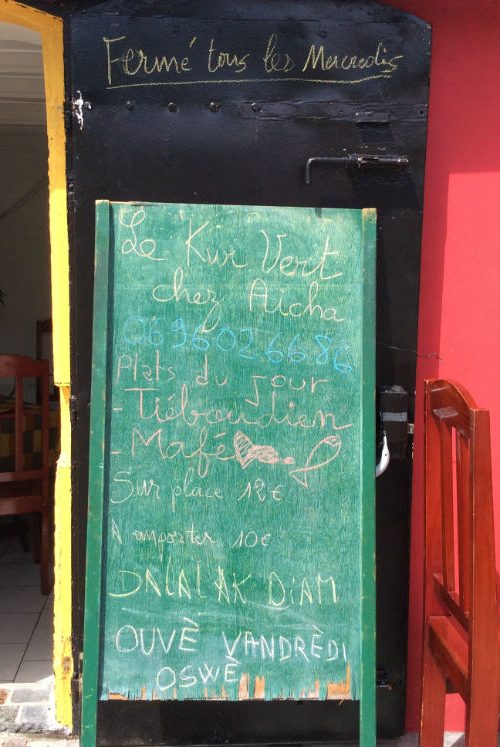 Fermé tous les Mercredis
Le Kur Vert
chez Aïcha
06 96 02 66 86
Plats du jour
- Tiéboudien
- Mafé
Sur place 12€
A emporter 10€
DALAL AK DIAM
OUVÈ VANDRÈDI
OSWÈ